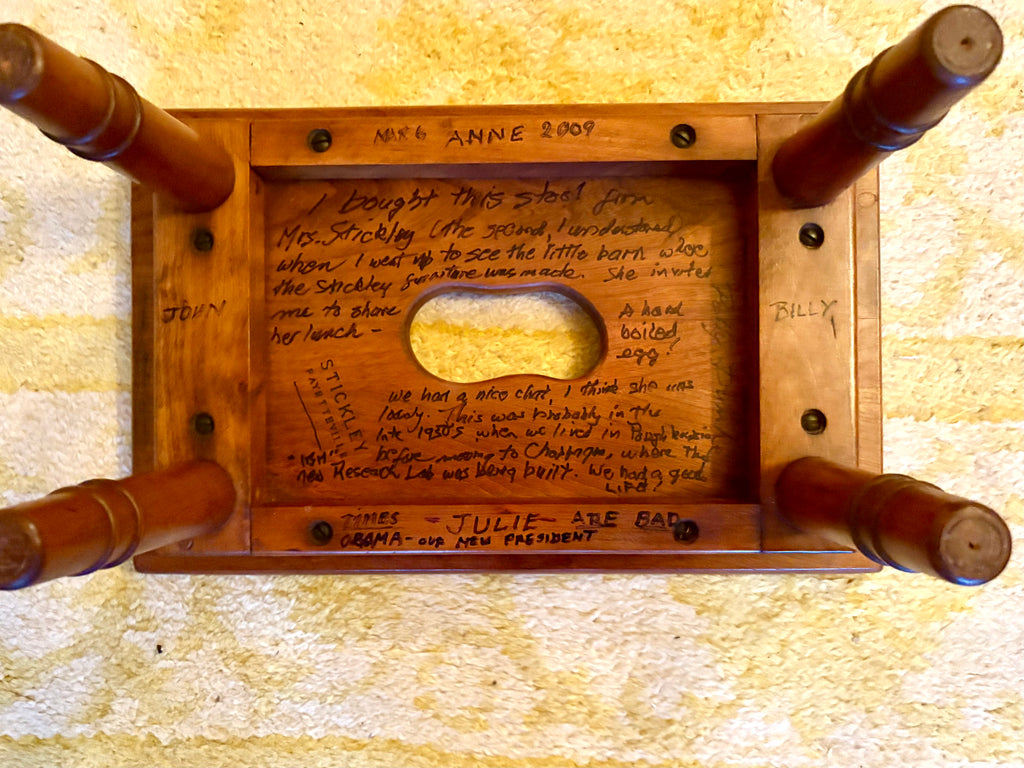 MAR 6 ANNE 2009
I bought this stool from
Mrs. Stickley (the second, I understand)
when I went up to see the little barn where
the Stickley furniture was made. She invited
me to share
her lunch -
A hard
boiled
egg!
JOHN
BILLY
STICKLEY
FAYETTEVILLE
we had a nice chat, I think she was
lonely. This was probably in the
late 1950's when we lived in Poughkeepsie
before moving to Chappaqua, where the
"IBM"
new Research Lab was being built. We had a good
LIFE!
TIMES - JULIE - ARE BAD
OBAMA - OUR NEW PRESIDENT